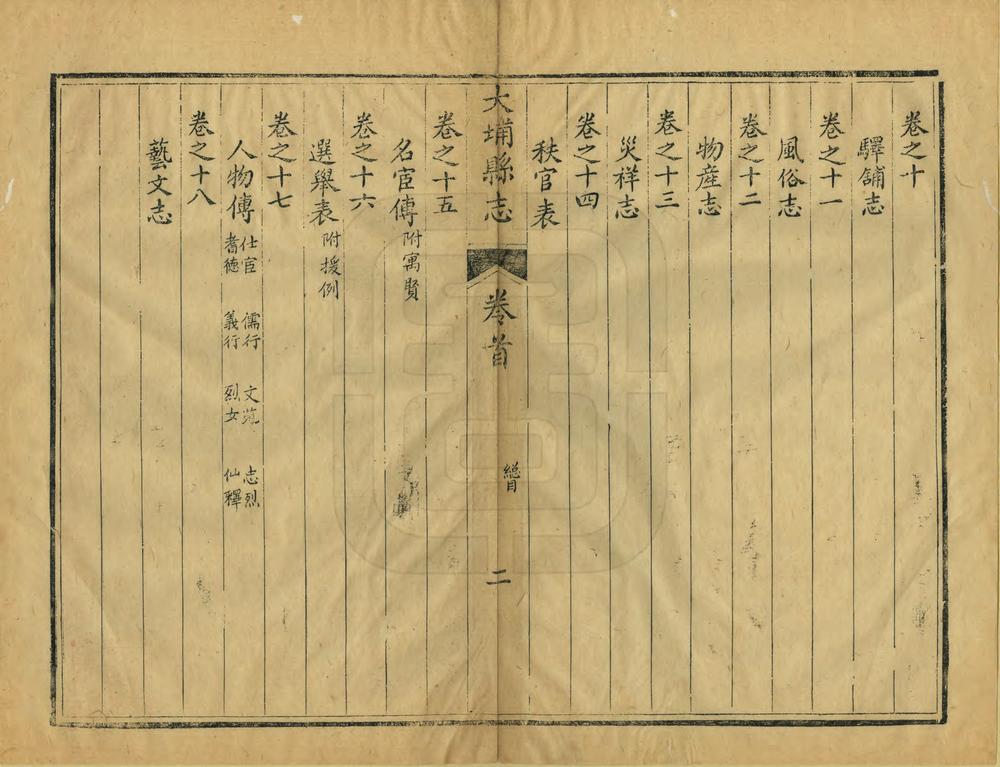 卷之十
驛舖志
卷之十一
風俗志
卷之十二
物產志
卷之十三
災祥志
卷之十四
秩官表
大埔縣志
卷首
總目
二
卷之十五
名宦傳附寓賢
卷之十六
選舉表附援例
卷之十七
人物傳仕宦 儒行 文苑 志烈
耆德 義行 烈女 仙釋
卷之十八
藝文志